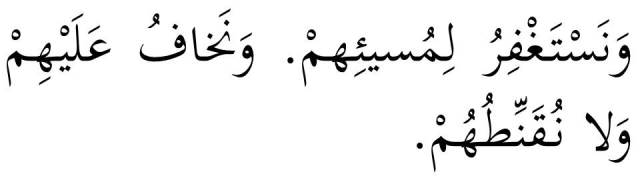 وَنَسْتَغْفِرُ لِمُسيئِهمْ. وَنَخافُ عَلَيْهِمْ
وَلا نُقَنِّطُهُمْ.